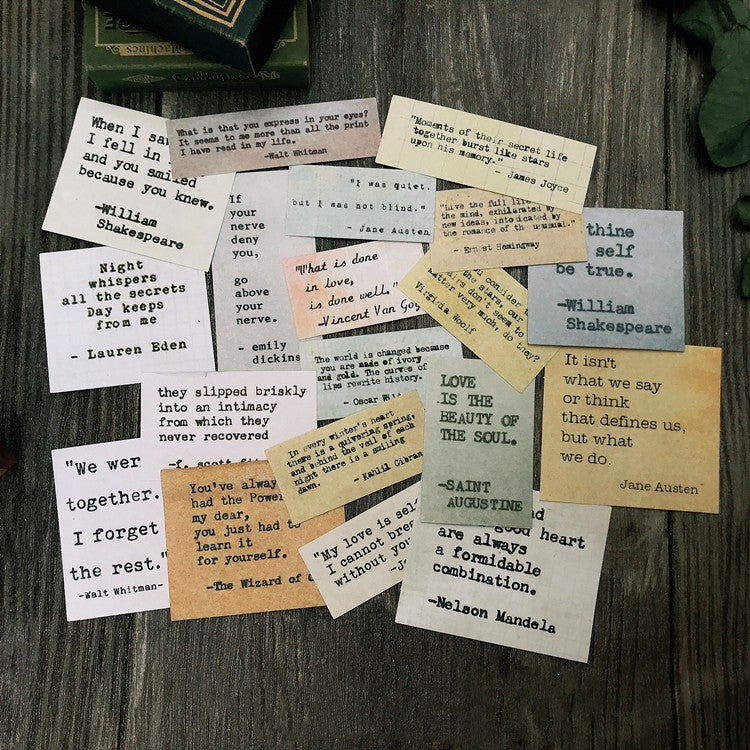 Machines
When I sa
I fell in
and you smiled
because you knew.
-William
Shakespeare
What is that you express in your eyes?
It seems to me more than all the print
I have read in my life.
-Walt Whitman
"Moments of their secret life
together burst like stars
upon his memory."
- James Joyce
If
your
nerve
deny
you,
go
above
your
nerve.
- emily
dickins
"I was quiet,
but I was not blind."
- Jane Austen
"Live the full life
the mind, exhilarated by
new ideas, intoxicated by
the romance of the unusual."
- Ernest Hemingway
thine
self
be true.
-William
Shakespeare
Night
whispers
all the secrets
Day keeps
from me
- Lauren Eden
"What is done
in love,
is done well."
-Vincent Van Gog
you consider
the stars, our
airs don't seem to
matter very much, do they?
Virginia Woolf
The world is changed because
you are made of ivory
and gold. The curves of
lips rewrite history.
- Oscar Wil
LOVE
IS THE
BEAUTY OF
THE SOUL.
-SAINT
AUGUSTINE
It isn't
what we say
or think
that defines us,
but what
we do.
Jane Austen
they slipped briskly
into an intimacy
from which they
never recovered
-f. scott fi
In every winter's heart
there is a quivering spring,
and behind the veil of each
night there is a smiling
dawn.
- Kahlil Gibran
"We wer
together.
I forget
the rest."
-Walt Whitman-
You've alway
had the Power
my dear,
you just had to
learn it
for yourself.
-The Wizard of O
"My love is sel
I cannot brea
without yo
-J
d
good heart
are always
a formidable
combination.
-Nelson Mandela